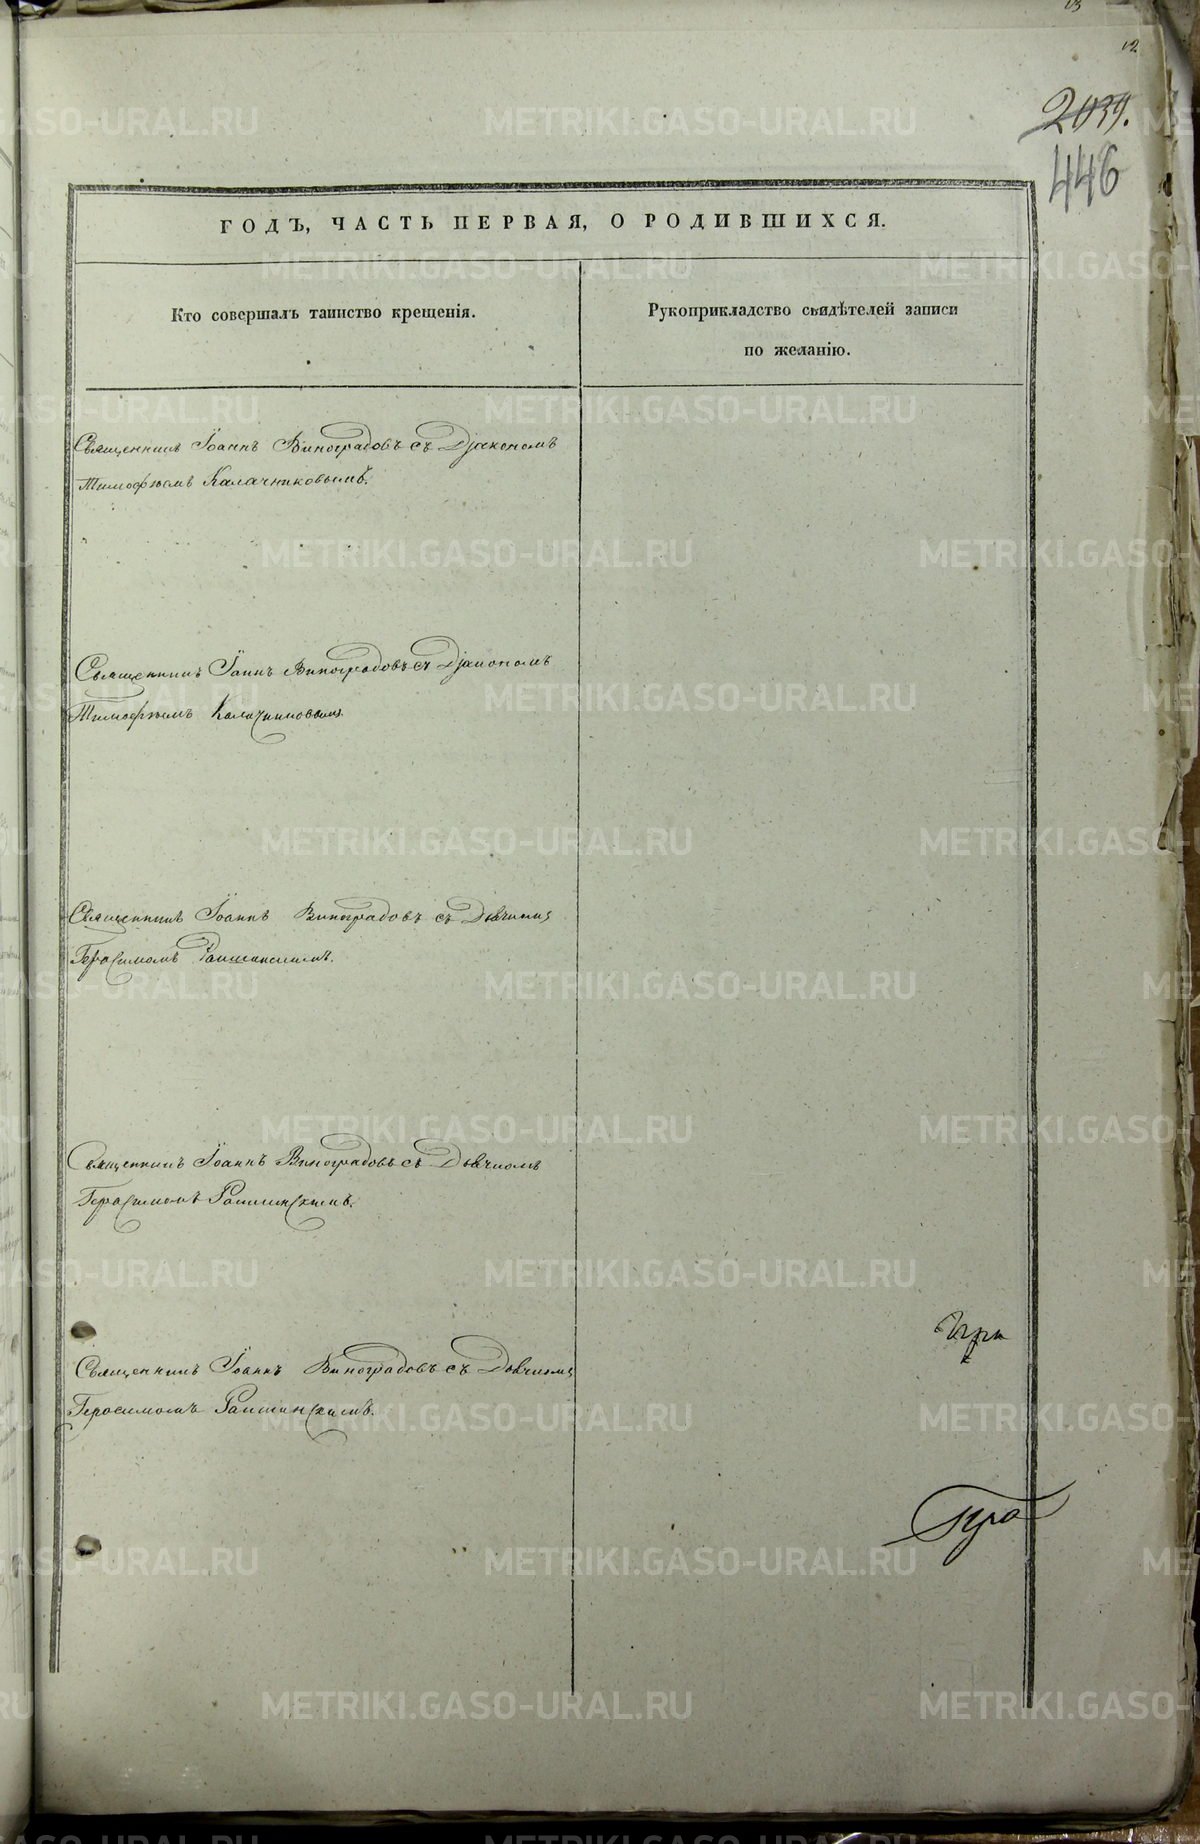 13
12
2039.
446
ГОДЪ, ЧАСТЬ ПЕРВАЯ, О РОДИВШИХСЯ.
Кто совершалъ таинство крещенія.
Рукоприкладство свидѣтелей записи
по желанію.
Священникъ Іоаннъ Виноградовъ съ Діакономъ
Тимофѣемъ Калачниковымъ.
Священникъ Іоаннъ Виноградовъ съ Діакономъ
Тимофѣемъ Калачниковымъ
Священникъ Іоаннъ Виноградовъ съ Дьячкомъ
Герасимомъ
Священникъ Іоаннъ Виноградовъ съ Дьячкомъ
Герасимомъ
Священникъ Іоаннъ Виноградовъ съ Дьячкомъ
Геросимомъ
METRIKI.GASO-URAL.RU